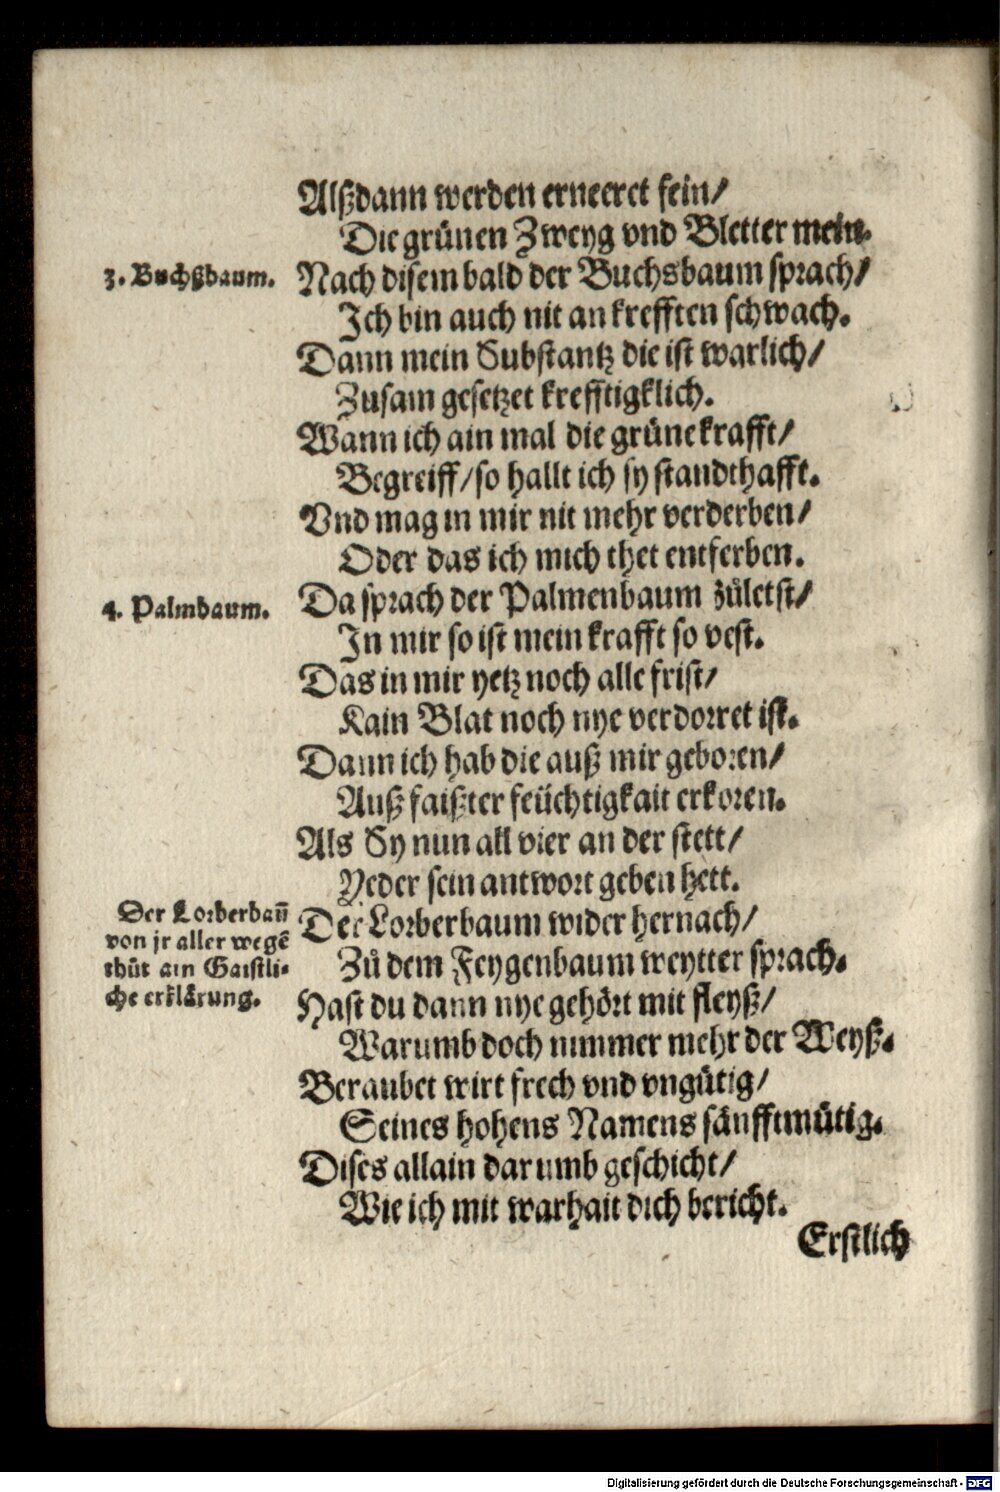 Alßdann werden erneeret sein/
Die grünen Zweyg vnd Bletter mein.
3. Buchßbaum.
Nach disem bald der Buchsbaum sprach/
Ich bin auch nit an krefften schwach.
Dann mein Substantz die ist warlich/
Zusam gesetzet krefftigklich.
Wann ich ain mal die grüne krafft/
Begreiff/so hallt ich sy standthafft.
Vnd mag in mir nit mehr verderben/
Oder das ich mich thet entferben.
4. Palmbaum.
Da sprach der Palmenbaum zůletst/
In mir so ist mein krafft so vest.
Das in mir yetz noch alle frist/
Kain Blat noch nye verdorret ist.
Dann ich hab die auß mir geboren/
Auß faißter feüchtigkait erkoren.
Als Sy nun all vier an der stett/
Yeder sein antwort geben hett.
Der Lorberbaũ
von jr aller wegẽ
thůt ain Gaistli-
che erklärung.
Der Lorberbaum wider hernach/
Zů dem Feygenbaum weytter sprach.
Hast du dann nye gehört mit fleyß/
Warumb doch nimmer mehr der Weyß.
Beraubet wirt frech vnd vngütig/
Seines hohens Namens sänfftmütig.
Dises allain darumb geschicht/
Wie ich mit warhait dich bericht.
Erstlich
Digitalisierung gefördert durch die Deutsche Forschungsgemeinschaft - DFG